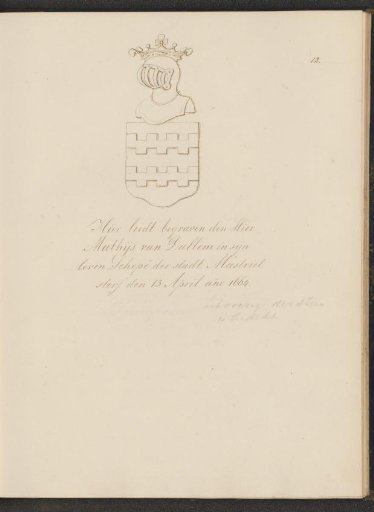 12.
Hier leidt begraven den Heer
Mathijs van Dallem in syn
leven Schepē der stadt Mastriet
sterf den 13 April ano 1664.